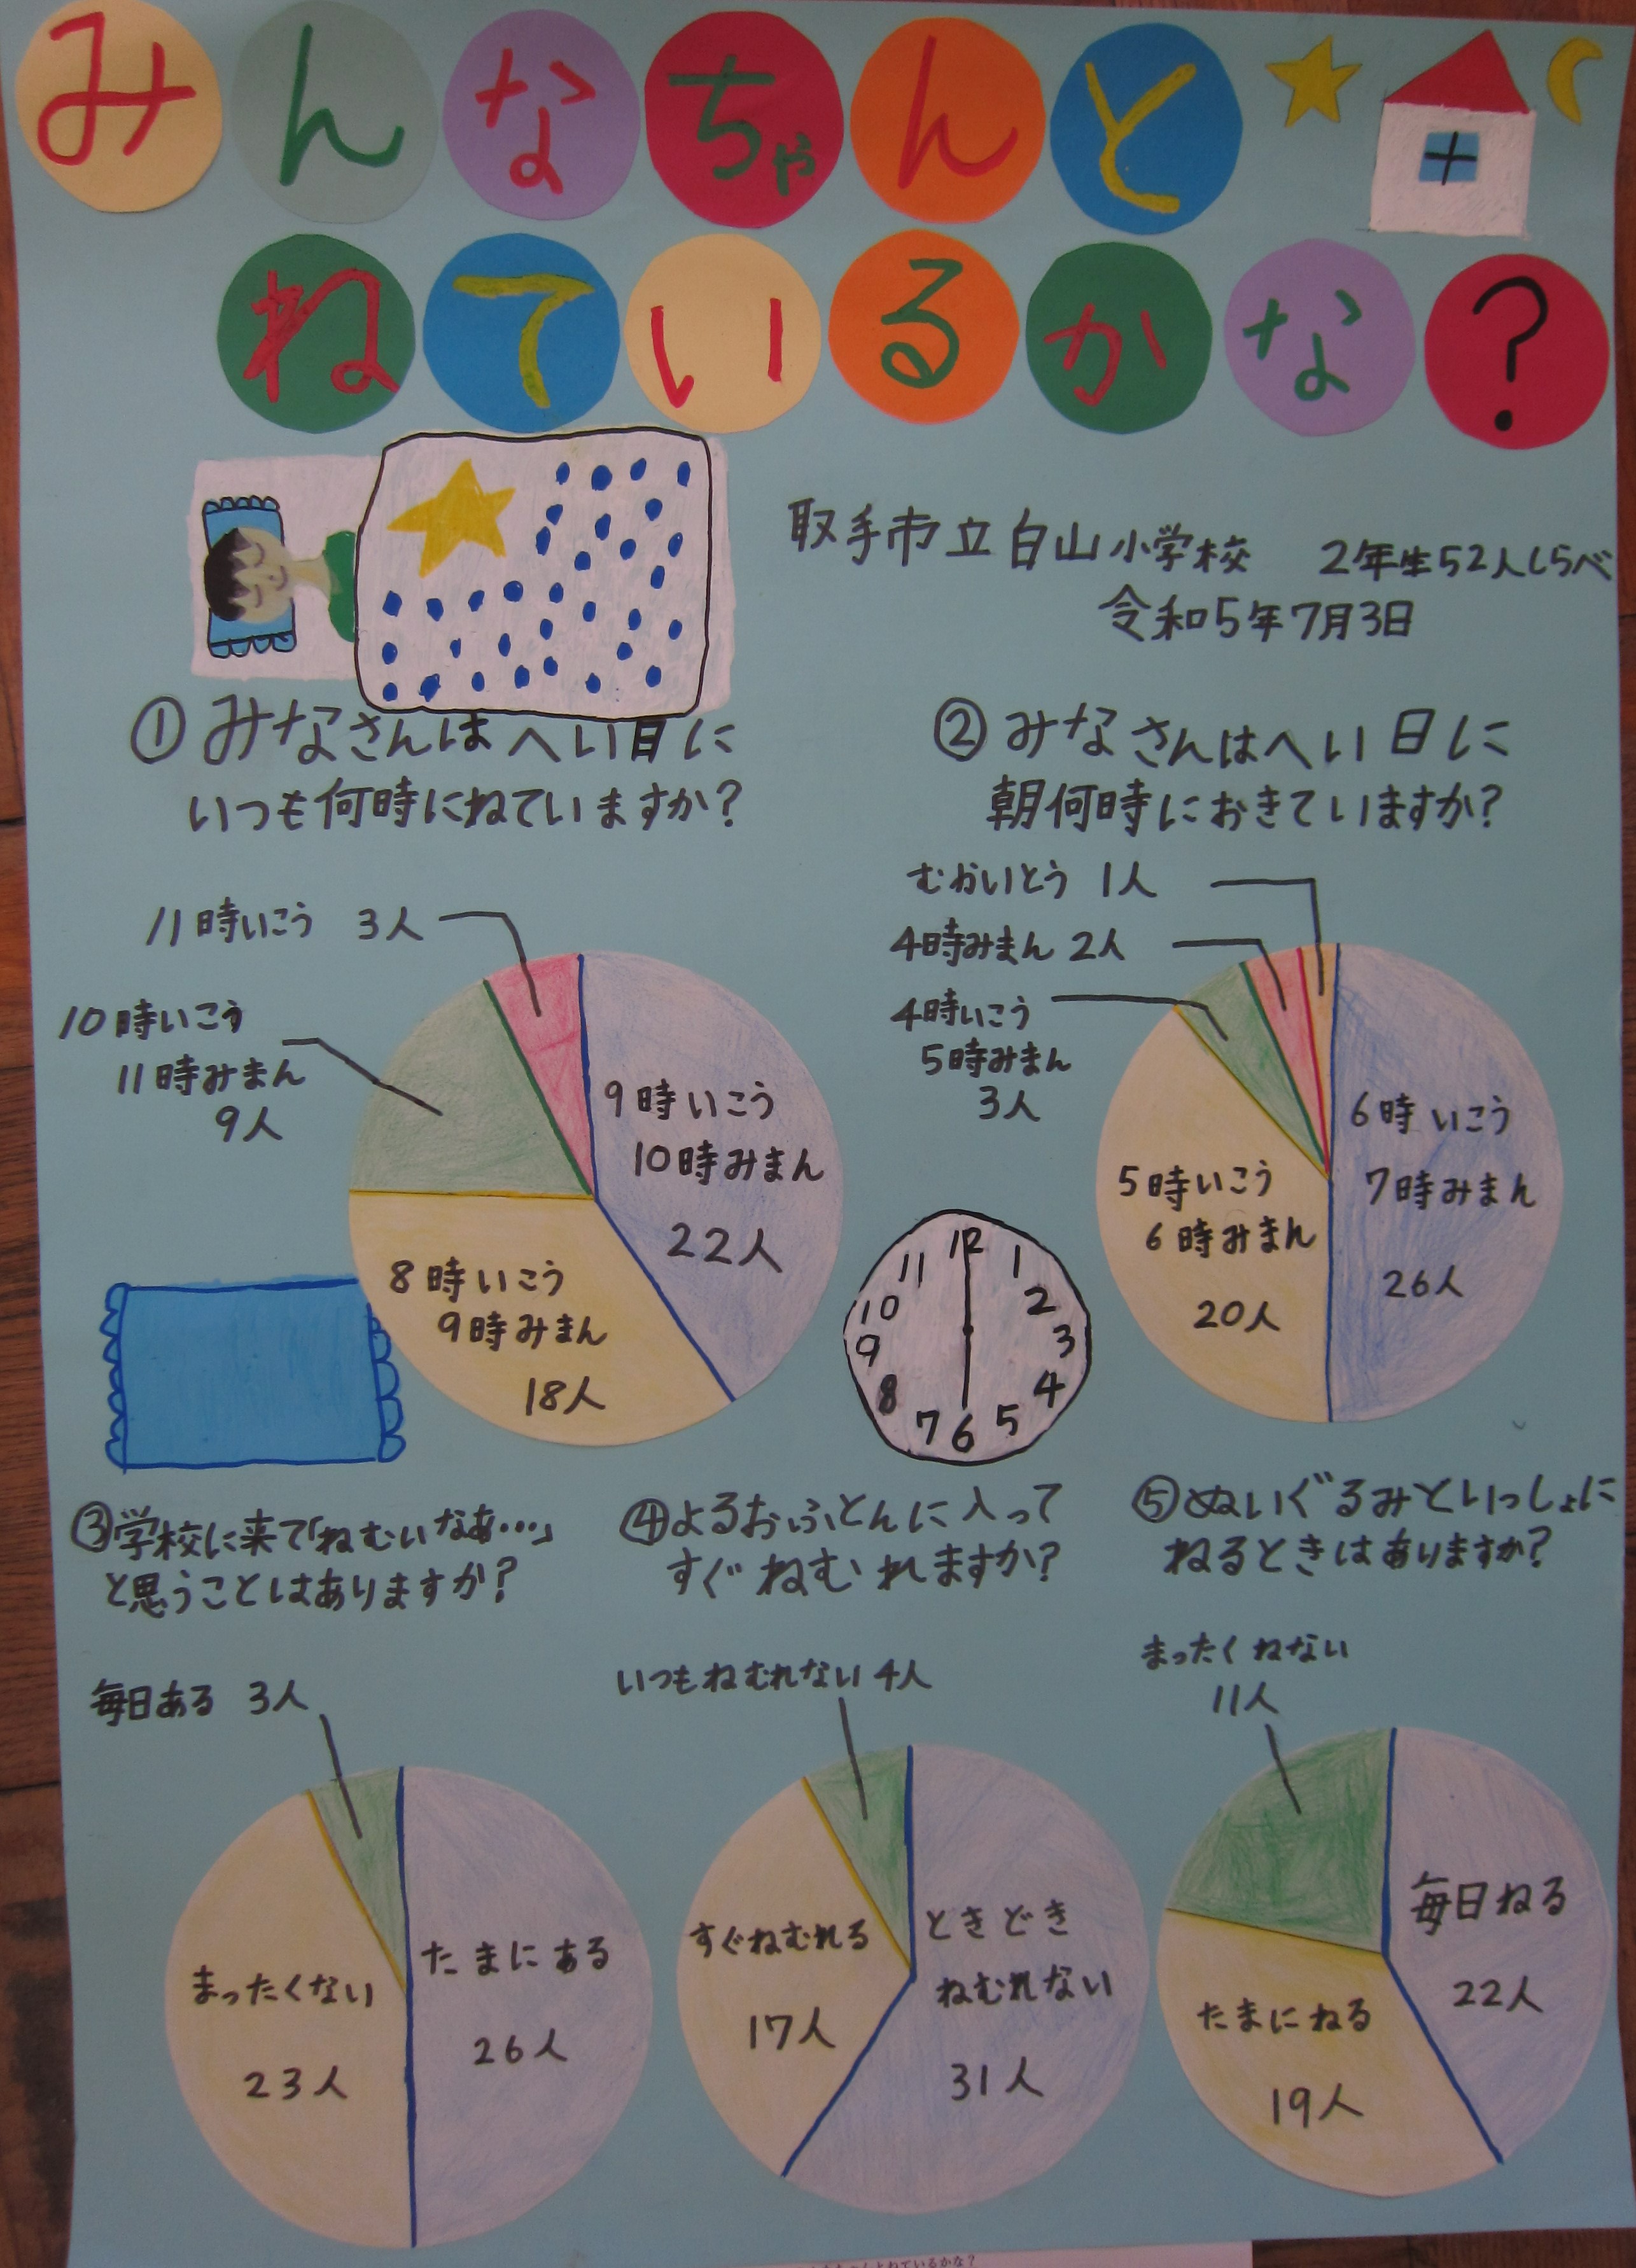 みんなちゃんと
ねているかな?
取手市立白山小学校 2年生52人しらべ
令和5年7月3日
①みなさんはへい日に
いつも何時にねていますか?
11時いこう 3人
10時いこう
11時みまん
9人
9時いこう
10時みまん
22人
8時いこう
9時みまん
18人
②みなさんはへい日に
朝何時におきていますか?
むかいとう 1人
4時みまん 2人
4時いこう
5時みまん
3人
6時いこう
7時みまん
26人
5時いこう
6時みまん
20人
12
1
2
3
4
5
6
7
8
9
10
11
③学校に来て「ねむいなあ…」
と思うことはありますか?
毎日ある 3人
たまにある
26人
まったくない
23人
④よるおふとんに入って
すぐねむれますか?
いつもねむれない 4人
ときどき
ねむれない
31人
すぐねむれる
17人
⑤ぬいぐるみといっしょに
ねるときはありますか?
まったくねない
11人
毎日ねる
22人
たまにねる
19人